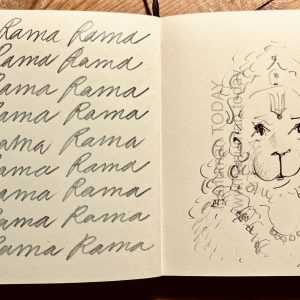 Rama Rama
Rama Rama
Rama Rama
Rama Rama
Rama Rama
Rama Rama
Rama Rama
Rama Rama
Rama Rama